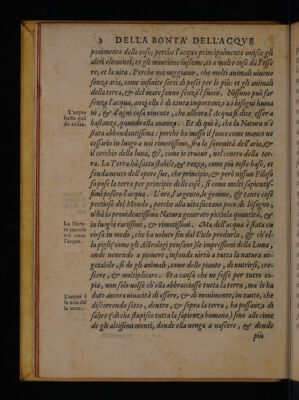 2 DELLA BONTA' DELL'ACQVE
ponimento delle cose; perche l'acqua principalmente unisce gli
altri elementi, et gli mantiene insieme, et a molte cose dà l'esse
re, et la uita. Perche noi ueggiamo, che molti animali uiueno
senza aria, come infinite sorti di pesci per lo più: et gli animali
della terra, & del mare sanno senza il fuoco. Nissuno può far
senza l'acqua, anzi ella è di tanta importanza a i bisogni huma
ni, & d'ogni cosa uiuente, che allhora l'Acqua si dice essere a
bastanza, quando ella auanza. Et di quì è, che la Natura n'è
stata abbondantissima: perche ha messo il fuoco come manco ne
cessario in luogo a noi rimotissimo, fra la sommità dell'aria, &
il cerchio della luna, &, come io truouo, nel centro della ter
ra. La Terra hà fatta stabile, & rozza, come più tosto base, et
fondamento dell'opere sue, che principio, & però nissun Filoso
fo pose la terra per principio delle cose, sì come molti sapientis
simi posero l'acqua. L'oro, l'argento, le gemme, & tante cose
pretiose del Mondo, perche alla uita faceano poco di bisogno,
n'hà la prouidentissima Natura generato picciola quantità, &
in luoghi rarissimi, & rimotissimi. Ma dell'acqua è stata cu
riosa in modo, che ha uoluto fin dal Cielo produrla, & ch'el-
la pigli; come gli Astrologi pensano, le impressioni della Luna,
onde uenendo a piouere, infonda uirtù a tutta la natura ue-
getabile, sì de gli animali, come delle piante, di nutrire, cre-
scere, & multiplicare. Et a causa che ne fusse per tutto co-
pia, non solo uolse ch'ella abbracciasse tutta la terra, ma le ha
dato ancora uiuacità di essere, & di mouimento, in tanto, che
discorrendo sotto, dentro, & sopra la terra, ha possanza di
salire (di che stupisce tutta la sapienza humana) fino alle cime
de gli altissimi monti, donde ella uenga a nascere, & donde
più
L'acqua
basta quã
do auãza.
La Natu-
ra
l'acque.
L'acqua è
la uita del
la terra.